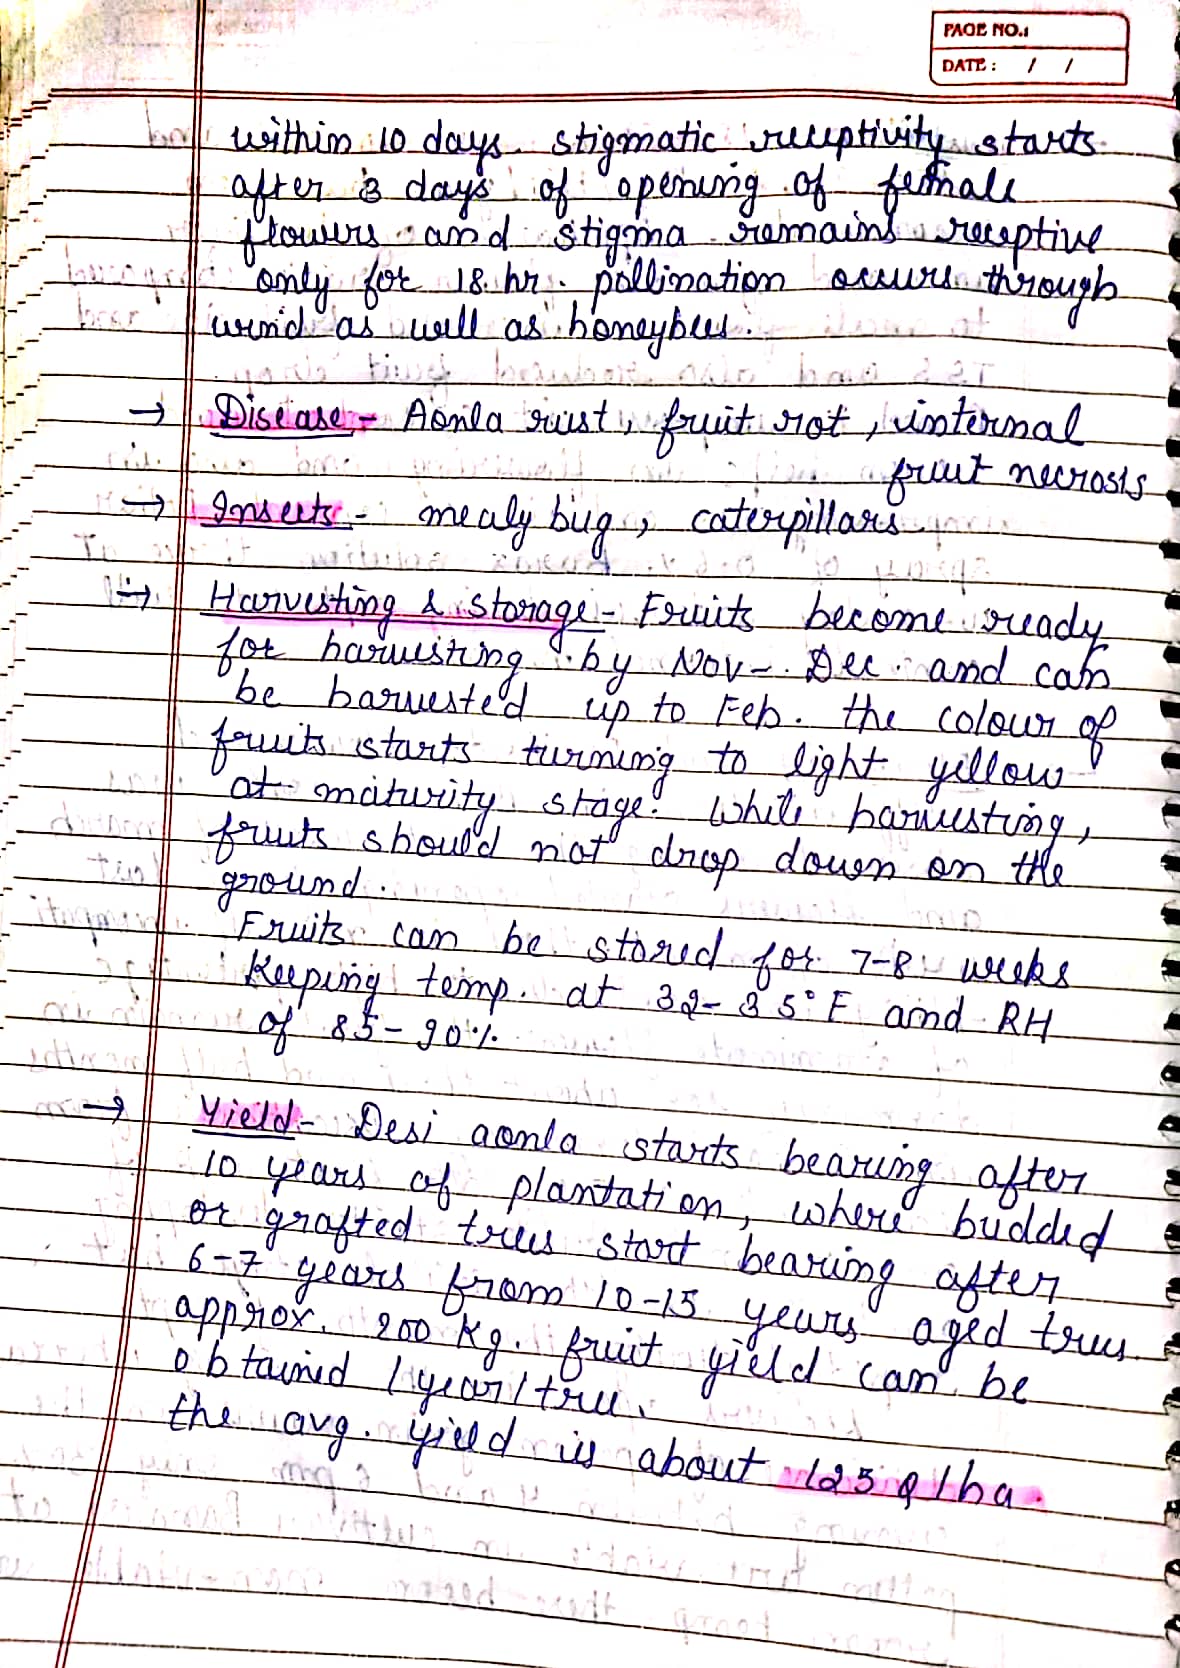 PAGE NO.:
DATE: / /
within 10 days. stigmatic receptivity starts
after 3 days of opening of female
flowers and stigma remains receptive
only for 18 hr. pollination occurs through
wind as well as honeybees.
→ Disease - Aonla rust, fruit rot, internal
fruit necrosis
→ Insects - mealy bug, caterpillars
→ Harvesting & storage - Fruits become ready
for harvesting by Nov - Dec. and can
be harvested up to Feb. the colour of
fruits starts turning to light yellow
at maturity stage. While harvesting,
fruits should not drop down on the
ground.
Fruits can be stored for 7-8 weeks
Keeping temp. at 32-35°F and RH
of 85-90%
→ Yield - Desi aonla starts bearing after
10 years of plantation, where budded
or grafted trees start bearing after
6-7 years from 10-15 years aged trees
approx. 200 Kg. fruit yield can be
obtained /year/tree.
the avg. yield is about 125 q/ha.